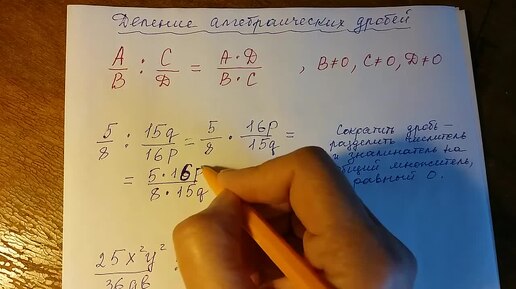 Деление алгебраических дробей
A/B : C/D = A·D/B·C , B≠0, C≠0, D≠0
5/8 : 15q/16p = 5/8 · 16p/15q =
= 5·16p/8·15q
Сократить дробь –
разделить числитель
и знаменатель на
общий множитель,
равный 0.
25x²y²/36ab :